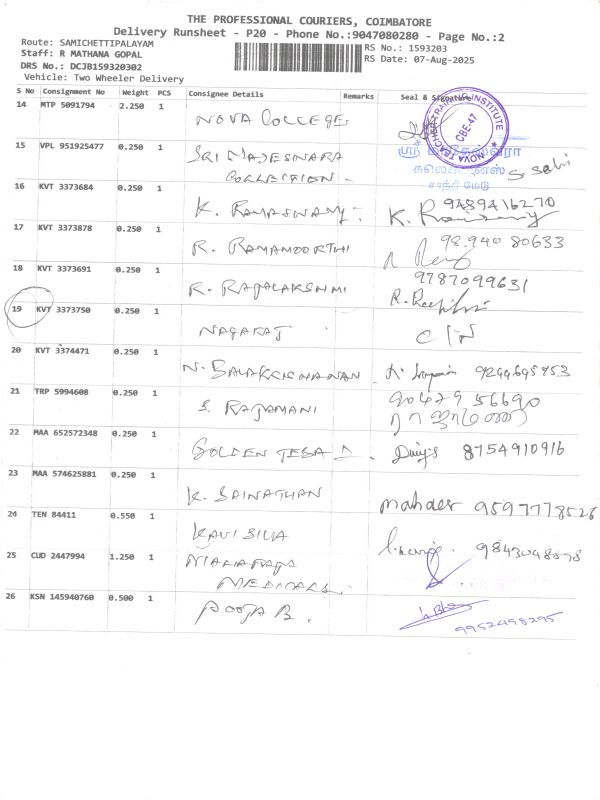 THE PROFESSIONAL COURIERS, COIMBATORE
Delivery Runsheet - P20 - Phone No.:9047080280 - Page No.:2
Route: SAMICHETTIPALAYAM
Staff: R MATHANA GOPAL
DRS No.: DCJB159320302
Vehicle: Two Wheeler Delivery
RS No.: 1593203
RS Date: 07-Aug-2025
S No Consignment No Weight PCS Consignee Details Remarks Seal & Signature
14 MTP 5091794 2.250 1 NOVA COLLEGE
NOVA TEACHER TRAINING INSTITUTE
CBE-47
15 VPL 951925477 0.250 1 SRI MAJESWARA
COLLECTION
ஸ்ரீ
கலெக்ஷன்ஸ்
சாந்தி மேடு
16 KVT 3373684 0.250 1 K. RAMASWAMY 9489416270
17 KVT 3373878 0.250 1 R. RAMAMOORTHI 98940 80633
18 KVT 3373691 0.250 1 R. RAJALAKSHMI 9787099631
19 KVT 3373750 0.250 1 NAGARAJ
20 KVT 3374471 0.250 1 N. BALAKRISHANAN 9244695953
21 TRP 5994608 0.250 1 S. RAJAMANI 90479 56690
ராஜாமணி
22 MAA 652572348 0.250 1 GOLDEN 8754910916
23 MAA 574625881 0.250 1 K. SAINATHAN mahdev 9597778526
24 TEN 84411 0.550 1 KAVI SIVA 9843048898
25 CUD 2447994 1.250 1 MEDICALS
26 KSN 145940760 0.500 1 POOJA B. 9952498295